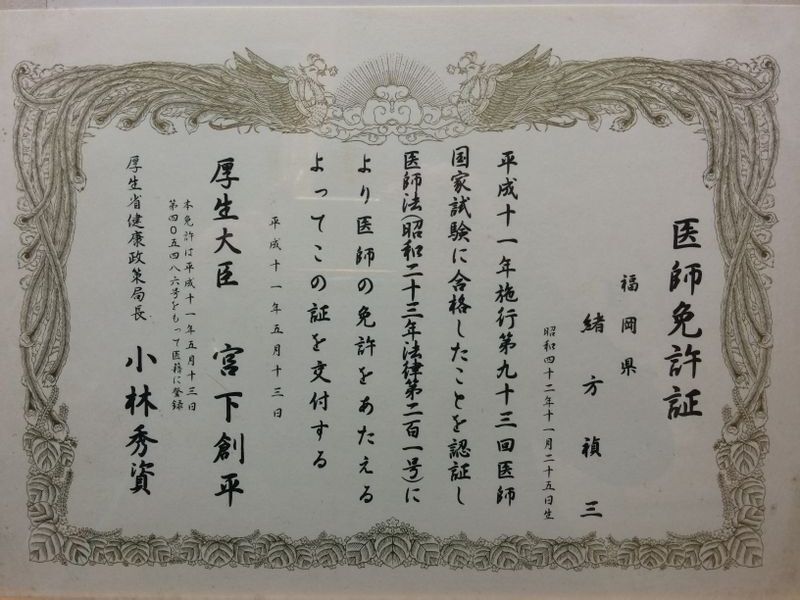 医師免許証
福岡県
緒方禎三
昭和四十二年十一月二十五日生
平成十一年施行第九十三回医師
国家試験に合格したことを認証し
医師法(昭和二十三年法律第二百一号)に
より医師の免許をあたえる
よってこの証を交付する
平成十一年五月十三日
厚生大臣 宮下創平
本免許は平成十一年五月十三日
第四〇五四八六号をもって医籍に登録
厚生省健康政策局長 小林秀資